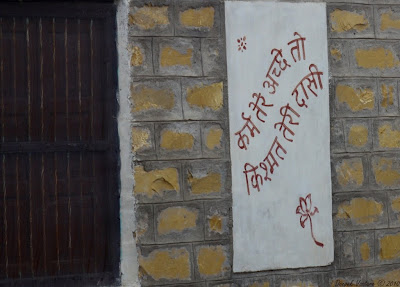 कर्म तेरे अच्छे तो
किश्मत तेरी दासी